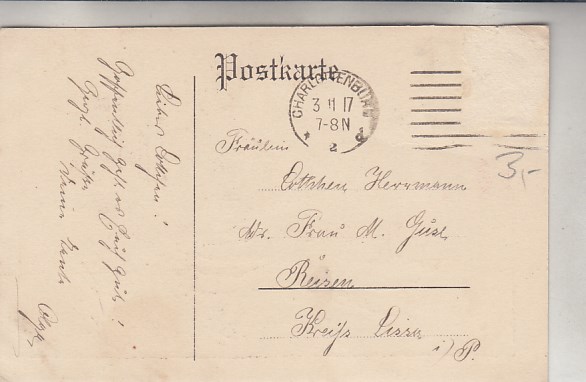 Postkarte
CHARLOTTENBURG
3 11 17
7-8N
2
Fräulein
Lottchen Herrmann
Adr. Frau M. Gusl
Reisen
Kreis Lissa
i/P.
3,-
Liebes Lottchen!
Hoffentlich geht es Euch gut!
Herzl. Grüße
Deine Tante